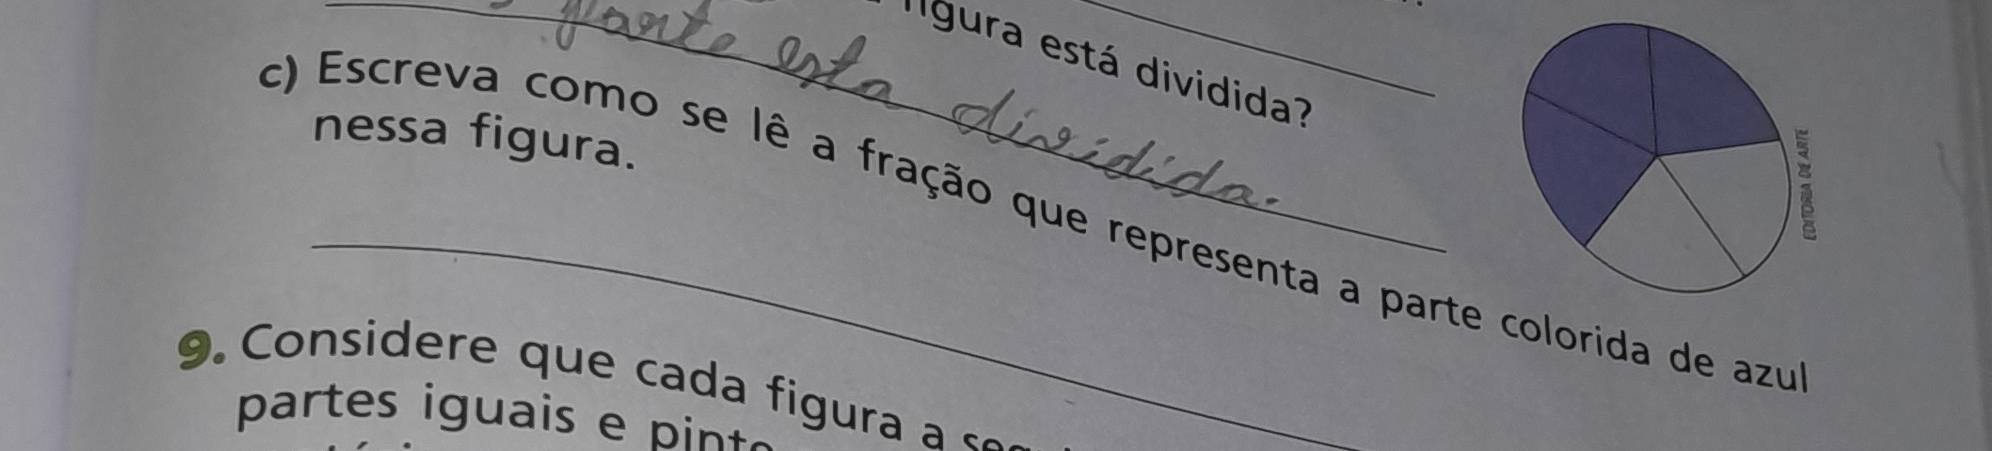 figura está dividida?
parte esta dividida.
c) Escreva como se lê a fração que representa a parte colorida de azul
nessa figura.
EDITORIA DE ARTE
9. Considere que cada figura a
partes iguais e